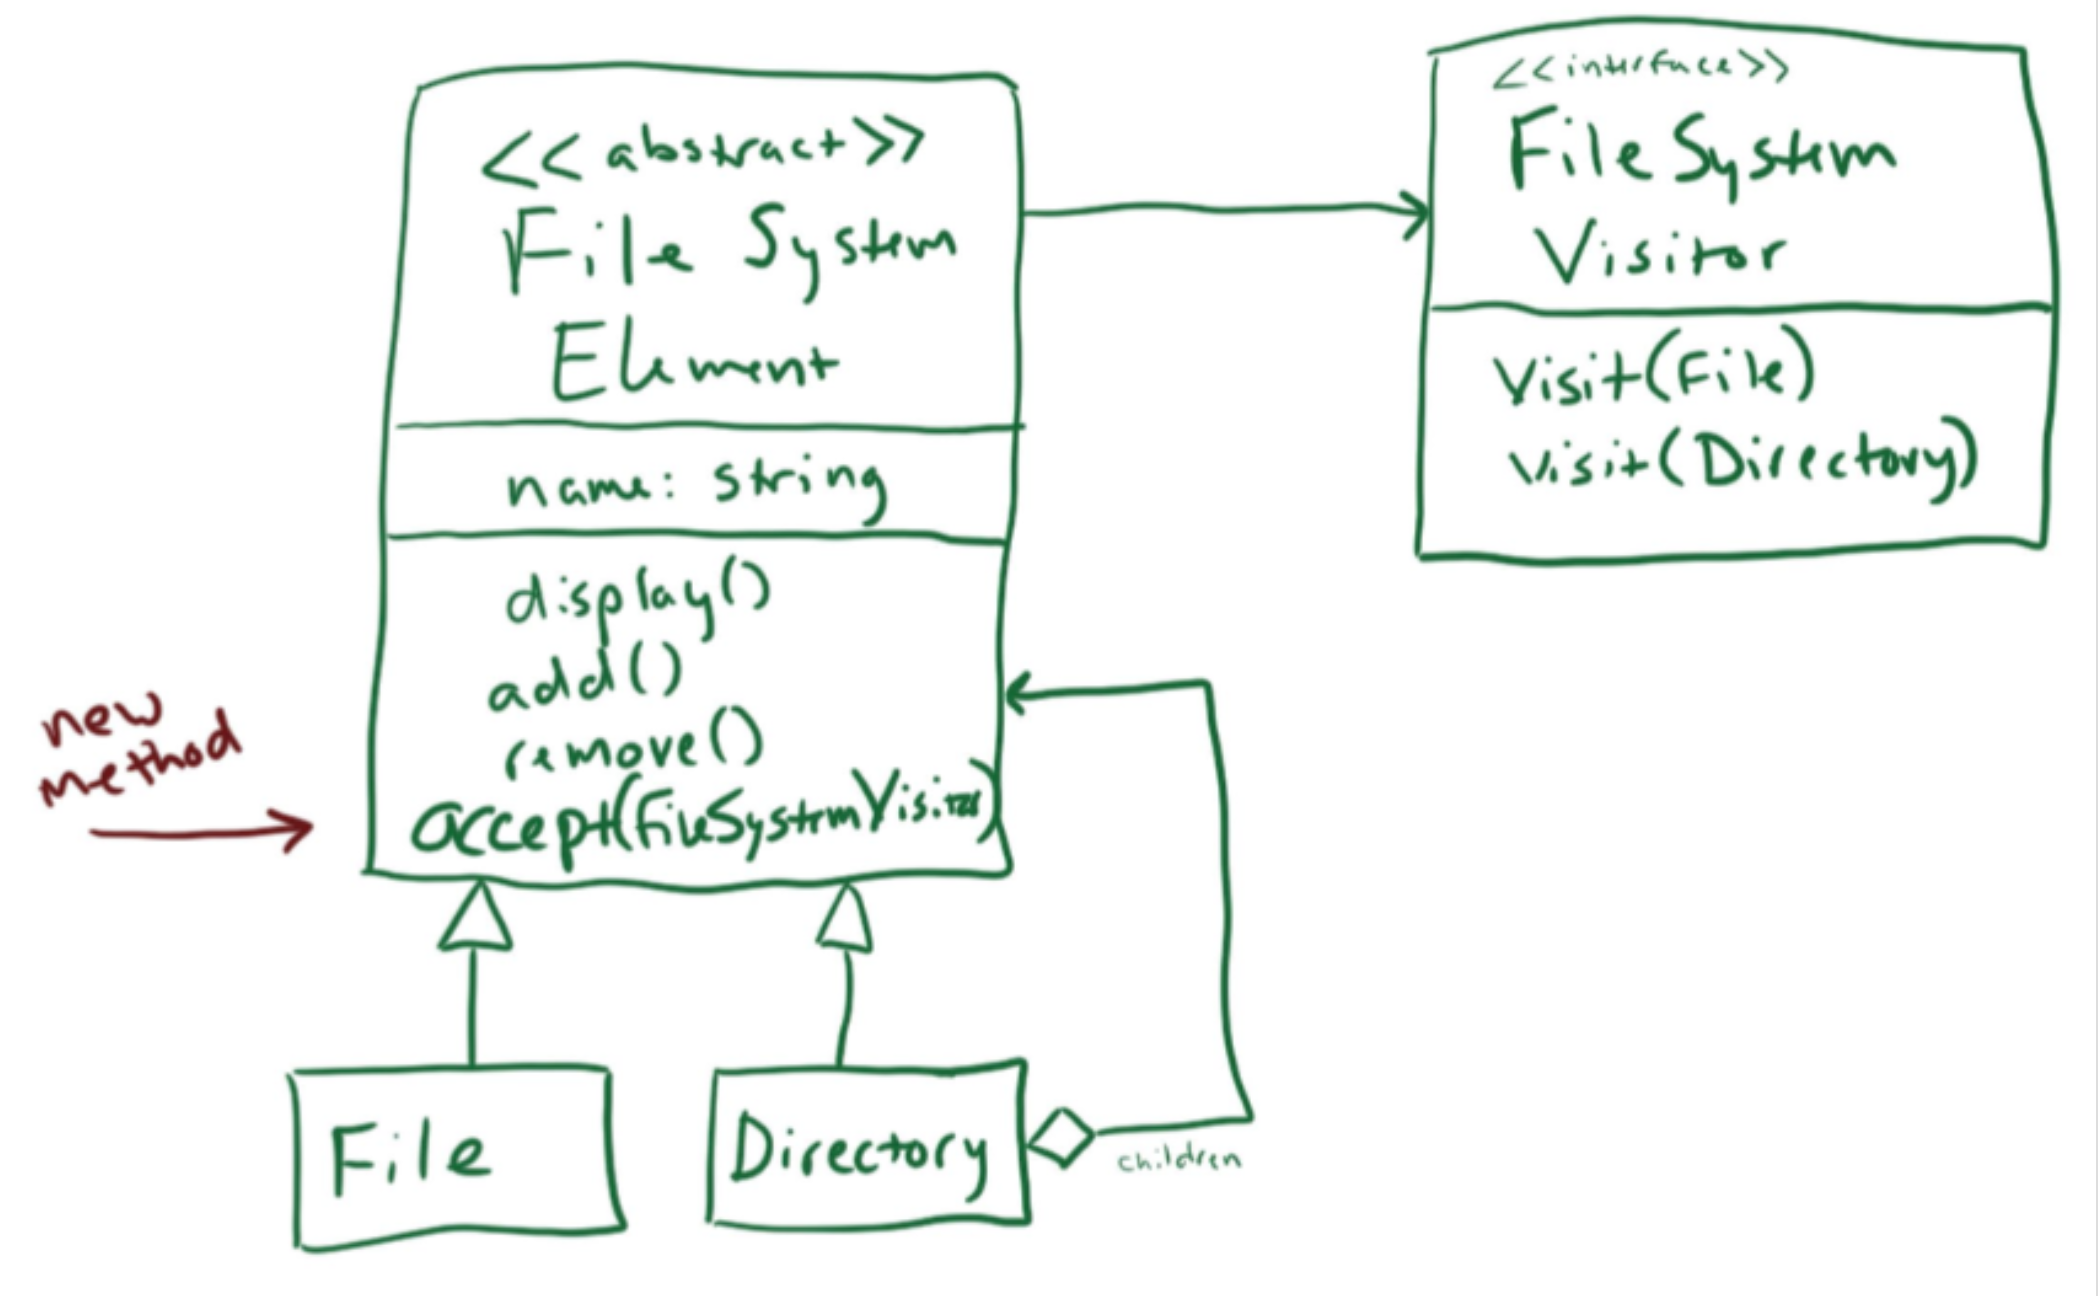 <<abstract>>
File System
Element
name: string
display()
add()
remove()
accept(FileSystemVisitor)
<<interface>>
FileSystem
Visitor
visit(File)
visit(Directory)
new
method
File
Directory
children